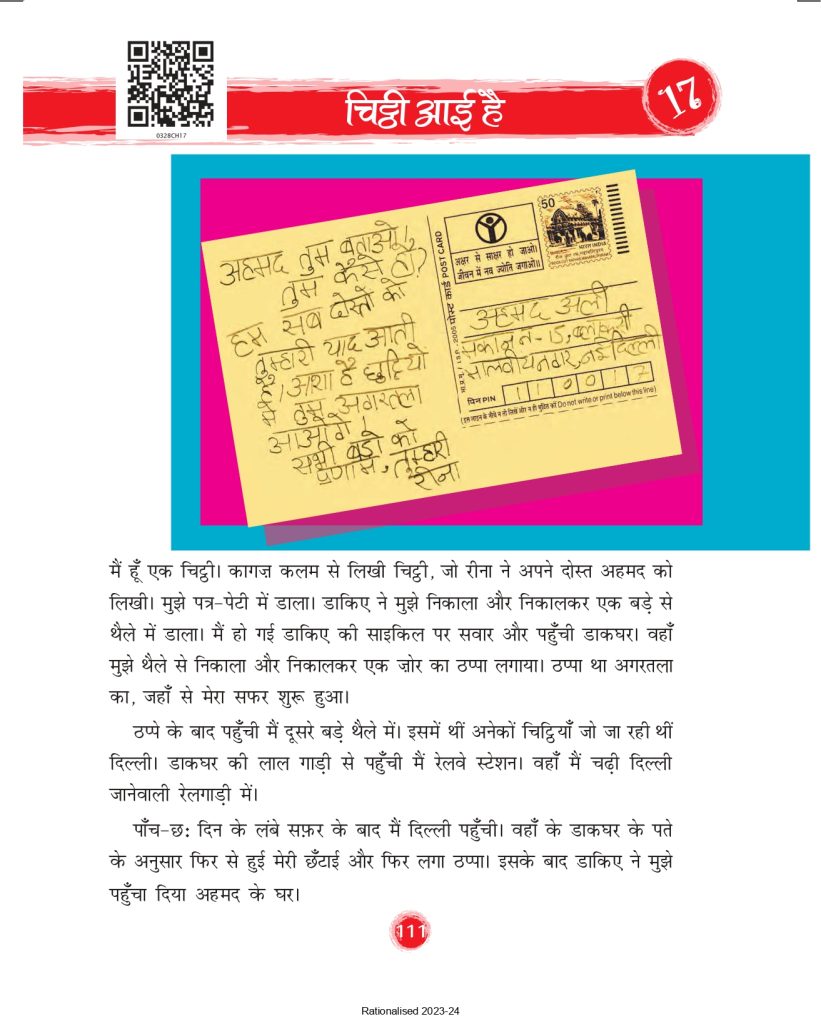 0328CH17
चिट्ठी आई है
17
अहमद तुम बताओ!
तुम कैसे हो?
हम सब दोस्तों को
तुम्हारी याद आती
है। आशा है छुट्टियों
में तुम अगरतला
आओगे!
सभी बड़ों को
प्रणाम, तुम्हारी
रीना
पोस्ट कार्ड POST CARD
अक्षर से साक्षर हो जाओ।
जीवन में नव ज्योति जगाओ॥
50
भारत INDIA
अहमद अली
मकान न॰-15,
मालवीय नगर, नई दिल्ली
पिन PIN 110017
(इस लाइन के नीचे न तो लिखें और न ही मुद्रित करें Do not write or print below this line)
मैं हूँ एक चिट्ठी। कागज़ कलम से लिखी चिट्ठी, जो रीना ने अपने दोस्त अहमद को
लिखी। मुझे पत्र-पेटी में डाला। डाकिए ने मुझे निकाला और निकालकर एक बड़े से
थैले में डाला। मैं हो गई डाकिए की साइकिल पर सवार और पहुँची डाकघर। वहाँ
मुझे थैले से निकाला और निकालकर एक ज़ोर का ठप्पा लगाया। ठप्पा था अगरतला
का, जहाँ से मेरा सफर शुरू हुआ।
ठप्पे के बाद पहुँची मैं दूसरे बड़े थैले में। इसमें थीं अनेकों चिट्ठियाँ जो जा रही थीं
दिल्ली। डाकघर की लाल गाड़ी से पहुँची मैं रेलवे स्टेशन। वहाँ मैं चढ़ी दिल्ली
जानेवाली रेलगाड़ी में।
पाँच-छः दिन के लंबे सफ़र के बाद मैं दिल्ली पहुँची। वहाँ के डाकघर के पते
के अनुसार फिर से हुई मेरी छँटाई और फिर लगा ठप्पा। इसके बाद डाकिए ने मुझे
पहुँचा दिया अहमद के घर।
111
Rationalised 2023-24